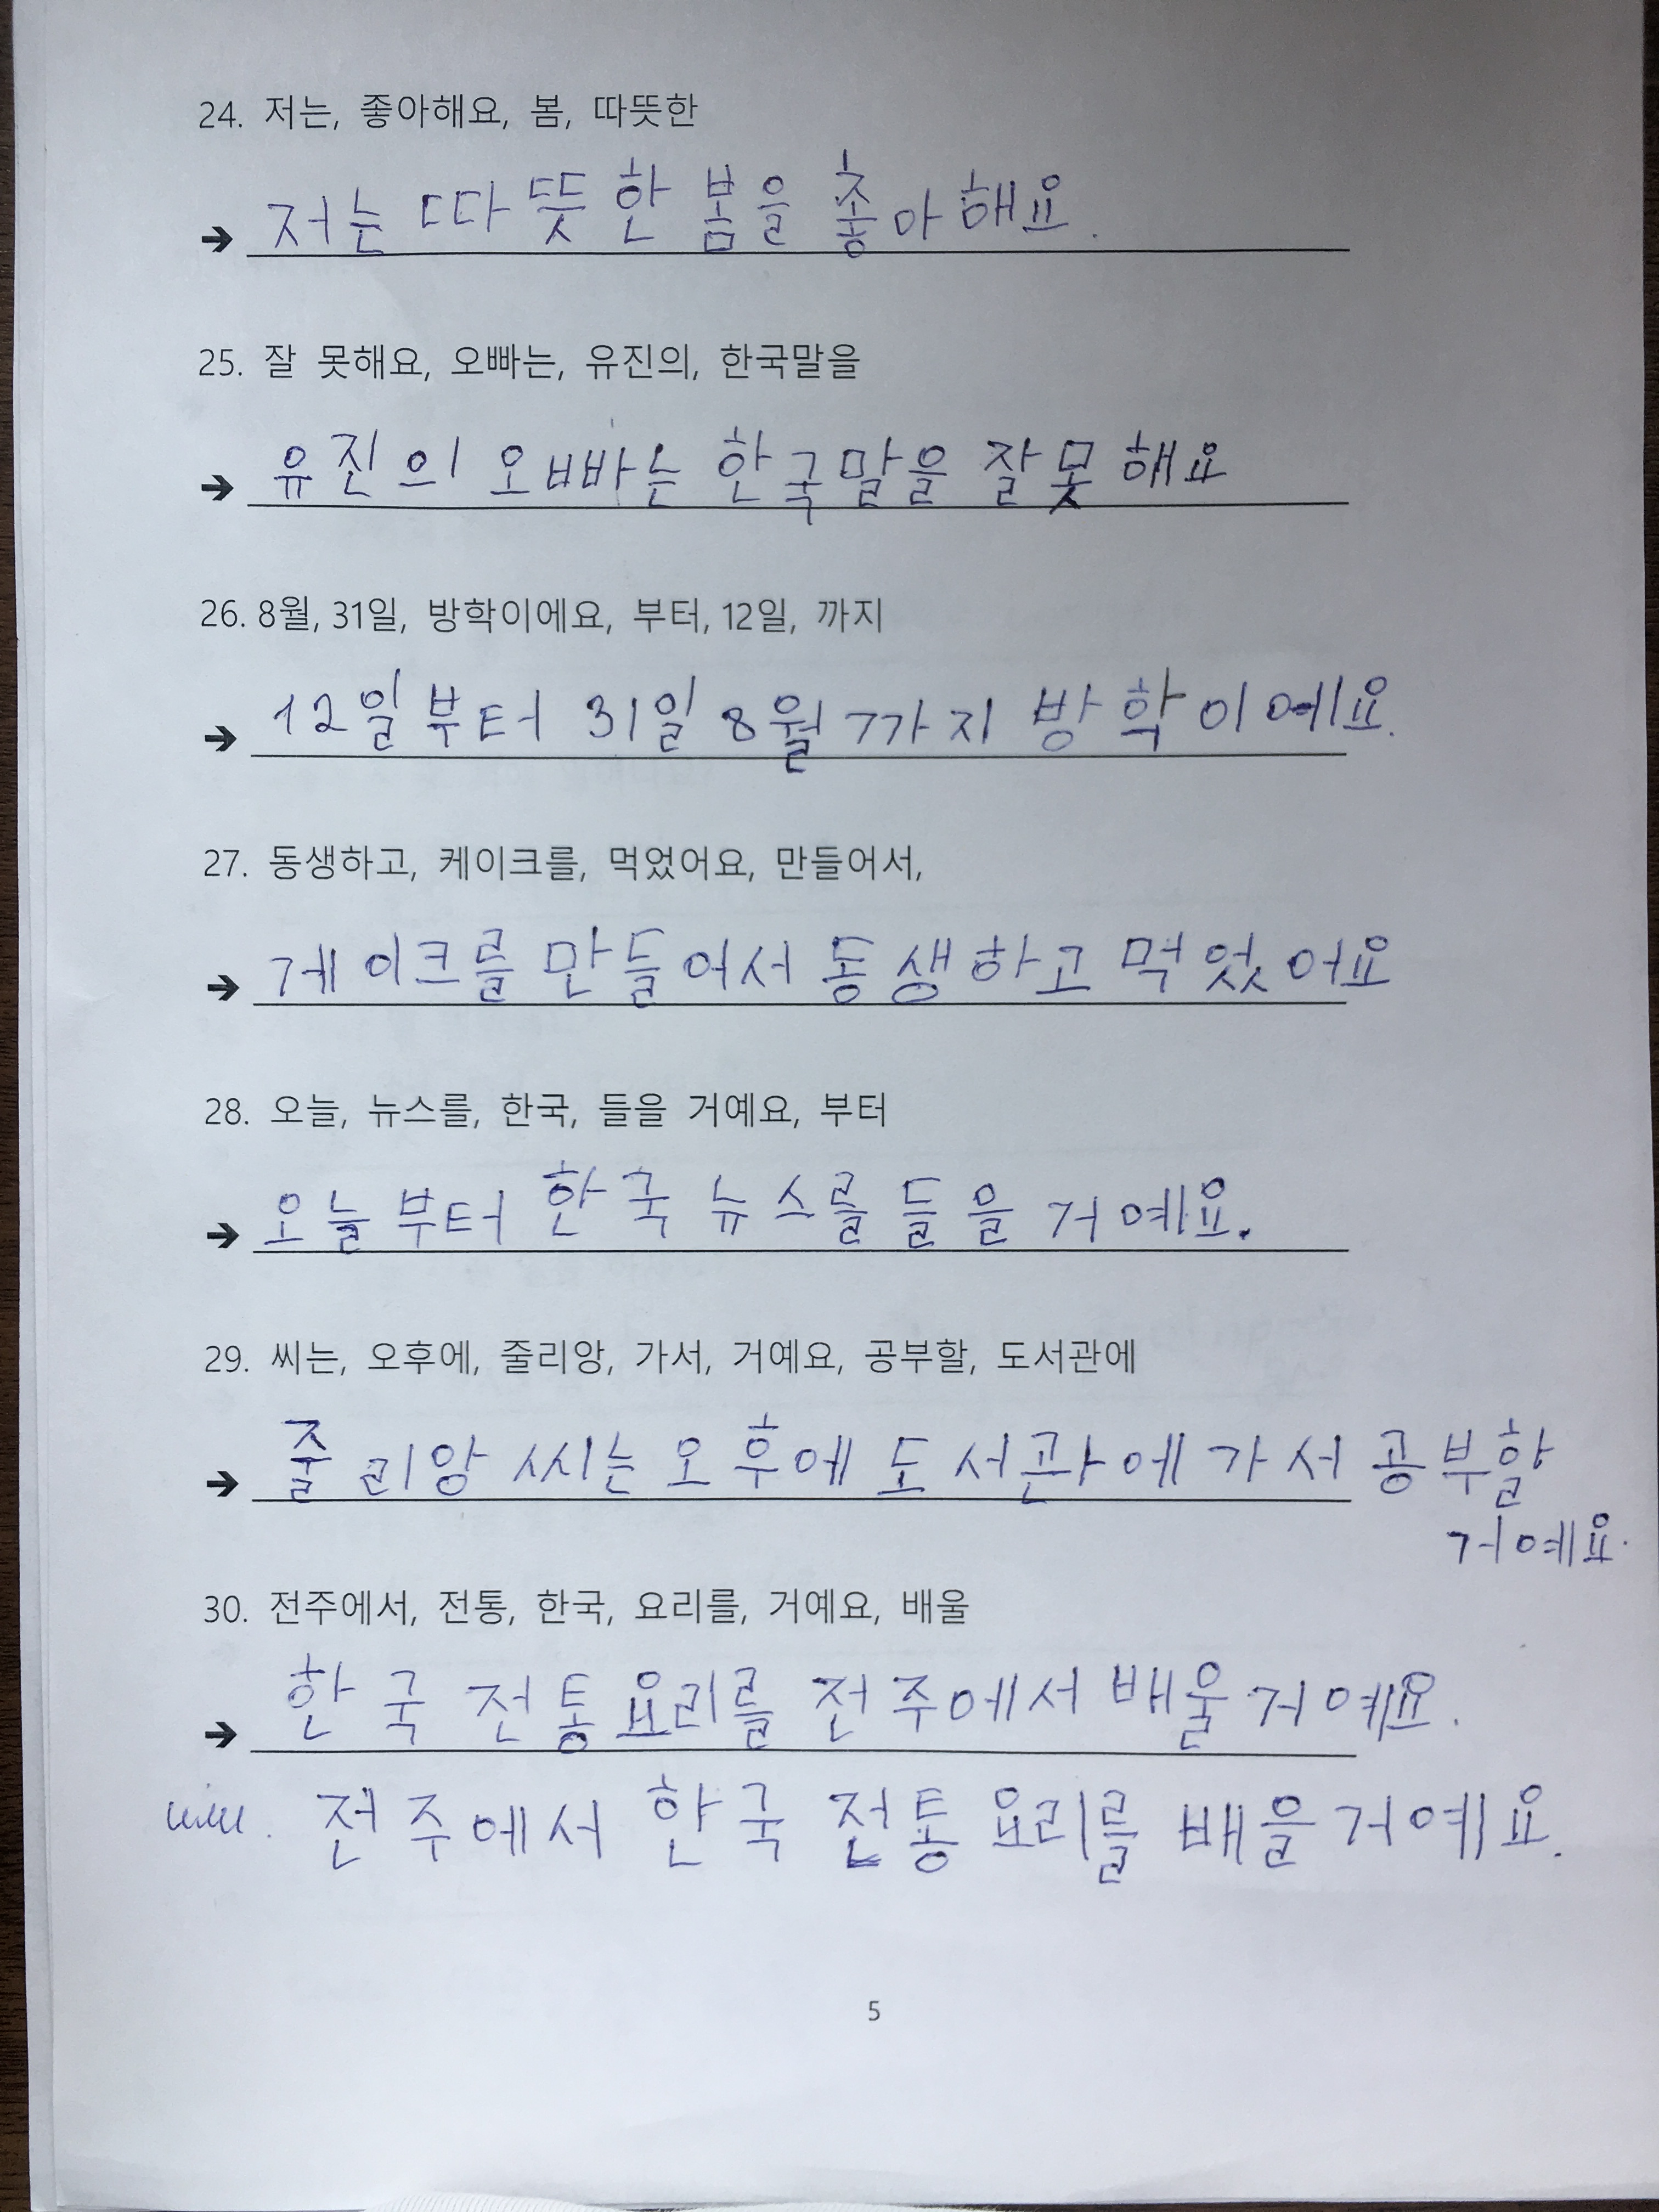 24. 저는, 좋아해요, 봄, 따뜻한
→ 저는 따뜻한 봄을 좋아해요.
25. 잘 못해요, 오빠는, 유진의, 한국말을
→ 유진의 오빠는 한국말을 잘못해요
26. 8월, 31일, 방학이에요, 부터, 12일, 까지
→ 12일부터 31일 8월 까지 방학이예요.
27. 동생하고, 케이크를, 먹었어요, 만들어서,
→ 게이크를 만들어서 동생하고 먹었어요
28. 오늘, 뉴스를, 한국, 들을 거예요, 부터
→ 오늘부터 한국 뉴스를 들을 거예요.
29. 씨는, 오후에, 줄리앙, 가서, 거예요, 공부할, 도서관에
→ 줄리앙 씨는 오후에 도서관에 가서 공부할
거예요.
30. 전주에서, 전통, 한국, 요리를, 거예요, 배울
→ 한국 전통 요리를 전주에서 배울 거예요.
или. 전주에서 한국 전통 요리를 배울 거예요.
5